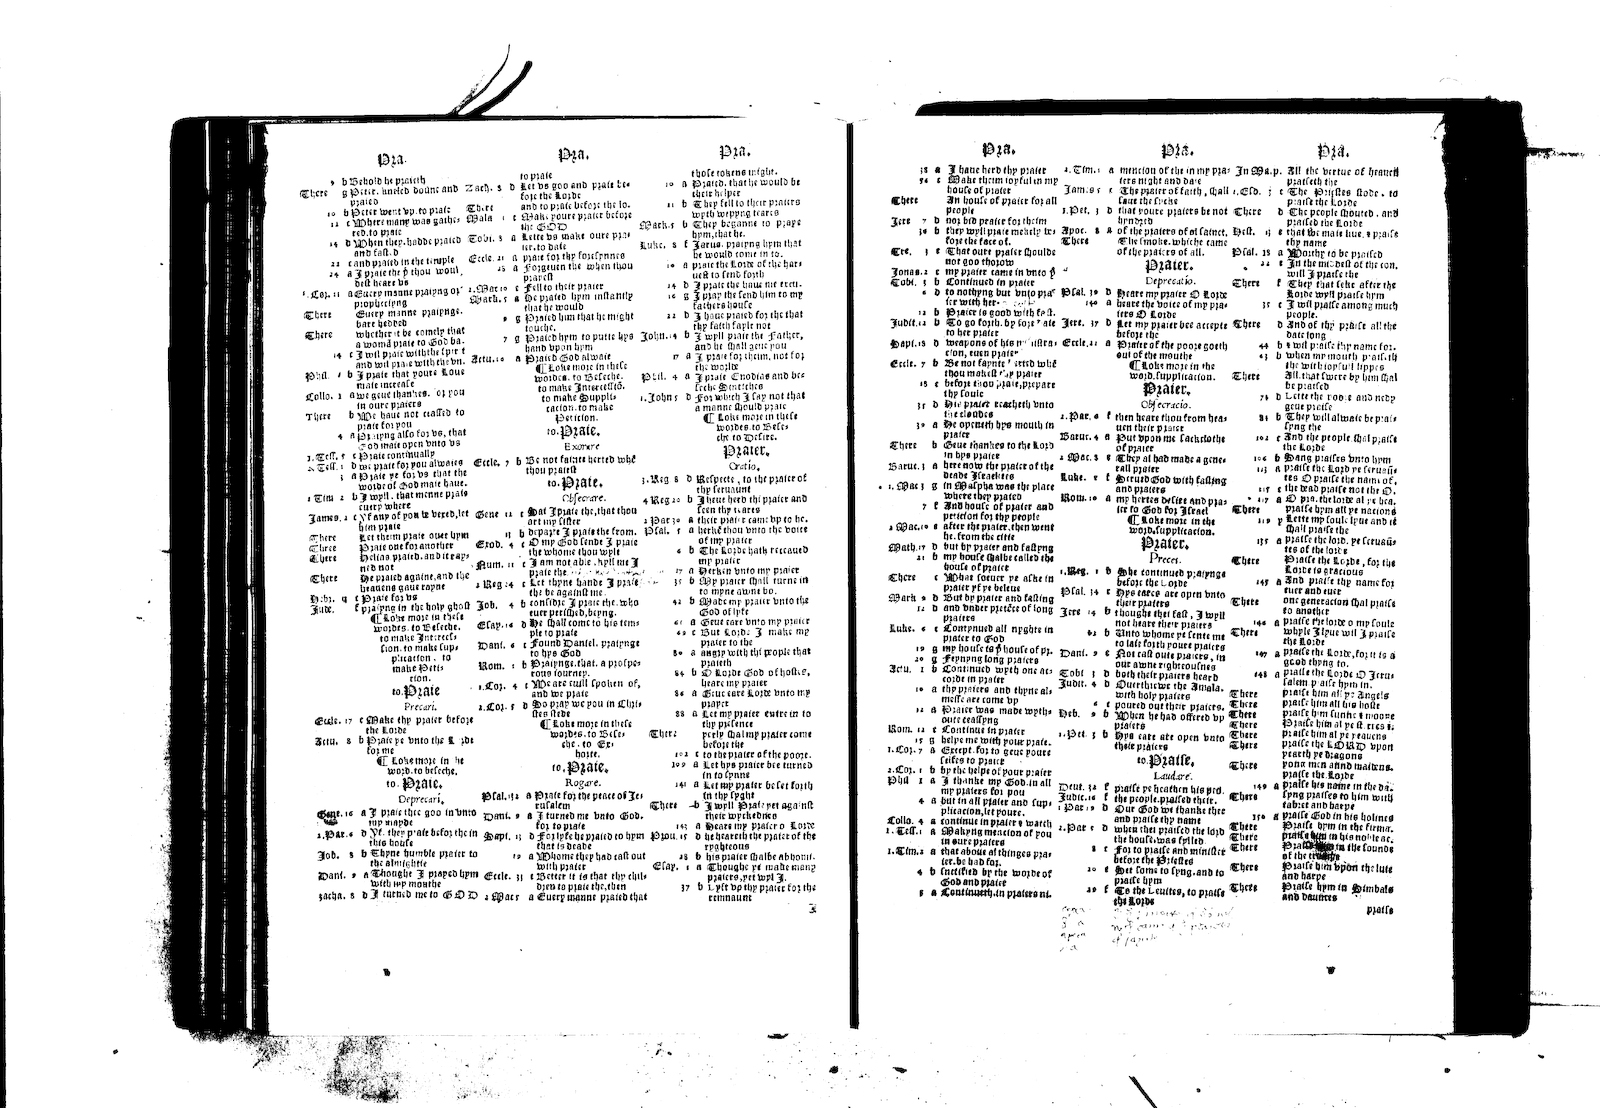 Pra.
9 b Behold he praieth
There g Peter. kneled doune and
praied
10 b Peter went vp. to praie
12 c Where many was gathe-
red. to praie
14 d When they. hadde praied
and fast.d
22 c and praied in the temple
24 a I praie the þ thou woul
dest heare vs
1.Cor. 11 a Euery manne praiyng or
prophecieng
There Euery manne praiynge.
bare hedded
There whether it be comely that
a womā praie to God ba.
14 c I wil praie with the spirit
and wil praie with the vn.
Phil. 1 b I praie that youre Loue
maie increase
Collo. 1 a we geue thankes. for you
in oure praiers
There b We haue not ceassed to
praie for you
4 a Praiyng also for vs, that
God maie open vnto vs
1.Tess. 5 c Praie continually
2.Tess. 1 d we praie for you alwaies
3 a Praie ye for vs that the
worde of God maie haue.
1 Tim 2 b I wyll. that menne praie
euery where
James. 5 c Yf any of you be vexed, let
him praie
There Let them praie ouer hym
There Praie one for another
There Helias praied. and it ray-
ned not
There He praied againe, and the
heauens gaue rayne
Praie for vs
Jude. f praiyng in the holy ghost
¶ Loke more in these
wordes. to Beseche.
to make Interces
sion. to make sup-
plication. to
make Peti-
cion.
to. Praie
Precari.
Eccle. 17 c Make thy praier before
the Lorde
Actu. 8 b Praie ye vnto the Lorde
for me
¶ Loke more in the
word. to beseche.
to. Praie.
Deprecari.
Gene. 16 a I praie thee goo in vnto
my mayde
2.Par. 6 d Yf. they praie before the in
this house
Job. 8 b Thyne humble praier to
the almightie
Dani. 9 a Thoughe I prayed hym
with my mouthe
zacha. 8 d I turned me to GOD
Pra.
to praie
Zach. 8 d Let vs goo and praie be-
fore the Lorde
There and to praie before the lo.
Mala 1 c Make youre praier before
the GOD
Tobi. 8 a Lette vs make oure praie
ier. to daie
Eccle. 21 a praie for thy forsynnes
28 a Forgeuen the when thou
praiest
1.Mac 10 c Fell to their praier
Mark. 5 a He praied hym instantly
that he would
8 g Praied him that he might
touche.
7 g Praied hym to putte hys
hand vpon hym
Actu. 10 a Praied God alwaie
¶ Loke more in these
wordes. to Beseche.
to make Intercessiō.
to make Suppli-
cacion. to make
Peticion.
to. Praie.
Exorare
Eccle. 7 b Be not fainte herted whē
thou praiest
to. Praie.
Obsecrare.
Gene 12 c Sai I praie the, that thou
art my sister
13 b departe I praie the from.
Exod. 4 c O my God sende I praie
the whome thou wylt
Num. 11 c I am not able. kyll me I
praie the.
2 Reg. 24 c Let thyne hande I praie
the be against me
Job. 4 b considre I praie the. who
euer perisshed, beyng.
Esay. 16 d He shall come to his tem-
ple to praie
Dani. 6 c Found Daniel. praiynge
to hys God
Rom. 1 b Praiynge. that. a prospe-
rous journey.
1.Cor. 4 c We are euill spoken of,
and we praie
2.Cor. 5 d So pray we you in Chri-
stes stede
¶ Loke more in these
wordes. to Bese-
che. to Ex-
horte.
to. Praie.
Rogare.
Psal. 132 a Praie for the peace of Je-
rusalem
Dani. 9 a I turned me vnto God.
for to praie
Sapi. 13 d For lyfe he praied to hym
that is deade
19 a Whome they had cast out
with praier
Eccle. 33 c Better it is that thy chil-
dren to praie the, then
2 Mac 5 a Euery manne praied that
Pra.
those tokens might.
10 a Praied. that he would be
their helper
11 b They fell to their praiers
wyth wepyng teares
Mark. 5 b They beganne to praye
hym, that he.
Luke. 8 f Jarus. praiyng hym that
he would come in to.
10 a praie the Lorde of the har-
uest to send forth
14 d I praie the haue me excu.
16 g I pray the send him to my
fathers house
22 d I haue praied for the that
thy faith fayle not
John. 14 b I wyll praie the Father,
and he shall geue you
17 a I praie for theim, not for
the worlde
Phil. 4 a I praie Enodias and bee-
seche Sintiches
1.John 5 d For which I say not that
a manne should praie
¶ Loke more in these
wordes. to Bese-
che to Desire.
Praier.
Oratio.
3.Reg 8 d Respecte, to the praier of
thy seruaunt
4 Reg 20 b I haue herd thi praier and
seen thy teares
2 Par 30 a their praier came vp to he.
Psal. 5 a herkē thou vnto the voice
of my praier
6 b The Lorde hath receaued
my praier
17 a Herken vnto my praier
35 b My praier shall turne in
to myne awne bo.
42 b Made my praier vnto the
God of lyfe
61 a Geue eare vnto my praier
69 c But Lord: I make my
praier to the
80 a angry with thi people that
praieth
84 b O Lorde God of hostes,
heare my praier
86 a Geue eare Lorde vnto my
prayer
88 a Let my praier entre in to
thy presence
There yerly shal my praier come
before the
102 c to the praier of the poore.
109 a Let hys praier bee turned
in to synne
141 a Let my praier be set forth
in thy syght
There b I wyll Praie yet against
their wyckednes
143 a Heare my praier o Lorde
Prou. 15 d he heareth the praier of the
ryghteous
28 b his praier shalbe abhomi.
Esay. 1 c Thoughe ye make many
praiers, yet wyl I.
37 b Lyft vp thy praier for the
remnaunt
I
Pra.
38 a I haue herd thy praier
56 c Make theim ioyful in my
house of praier
There In house of praier for all
people
Jere 7 d nor bid praier for theim
30 b they wyll praie mekely be
fore the face of.
Tre. 3 e That oure praier shoulde
not goo thorow
Jonas. 2 c my praier came in vnto þ
Tobi. 3 b Continued in praier
6 d to nothyng but vnto prai
ier with her.
12 b Praier is good with fast.
Judit. 12 b To go forth. by fore daie
to her praier
Sapi. 18 d weapons of his ministra-
cion, euen praier
Eccle. 7 b Be not faynte herted whē
thou makest thy praier
18 c before thou praie, prepare
thy soule
35 d His praier reacheth vnto
the cloudes
39 a He openeth hys mouth in
praier
There b Geue thankes to the Lord
in hys praier
Baruc. 3 a here now the praier of the
deade Israelites
1.Mac 3 g in Maspha was the place
where they praied
7 f And house of praier and
peticion for thy people
2 Mac. 10 e after the praier, then went
he. from the citie
Math. 17 d but by praier and fastyng
21 b my house shalbe called the
house of praier
There c What soeuer ye aske in
praier yf ye beleue
Mark 9 d But by praier and fasting
12 d and vnder pretēce of long
praiers
Luke. 6 c Contynued all nyghte in
praier to God
19 g my house is þ house of pr.
20 g Feynyng long praiers
Actu. 1 b Continued wyth one ac-
corde in praier
10 a thy praiers and thyne al-
messe are come vp
12 a Praier was made wyth-
oute ceassyng
Rom. 12 c Continue in praier
15 g helpe me with your praie.
1.Cor. 7 a Except. for to geue youre
selfes to praier
2.Cor. 1 b by the helpe of your praier
Phil 1 a I thanke my God. in all
my praiers for you
4 a but in all praier and sup-
plicacion, let youre.
Collo. 4 a continue in praier & watch
1.Tess. 1 a Makyng mencion of you
in oure praiers
1.Tim. 2 a that aboue al thinges prai-
ier. be had for.
4 b sanctified by the worde of
God and praier
5 a Continueth. in praiers ni.
Pra.
2.Tim. 1 a mencion of the in my prai-
iers night and daie
Jam. 5 c The praier of faith, shall
saue the sicke
1.Pet. 3 d that youre praiers be not
hyndred
Apoc. 8 a of the praiers of al sainct.
There The smoke. whiche came
of the praiers of all.
Praier.
Deprecatio.
Psal. 39 d Heare my praier O Lorde
140 a heare the voice of my prai-
iers O Lorde
Jere. 37 d Let my praier bee accepte
before the
Eccle. 21 a Praier of the poore goeth
out of the mouthe
¶ Loke more in the
word. supplicacion.
Praier.
Obsecracio.
2.Par. 6 f then heare thou from hea-
uen their praier
Baruc. 4 a Put vpon me sackclothe
of praier
2 Mac. 3 e They al had made a gene-
rall praier
Luke. 2 c Serued God with fasting
and praiers
Rom. 10 a my hertes desire and prai-
ier to God for Israel
¶ Loke more in the
word. supplicacion.
Praier.
Preces.
1.Reg. 1 b She continued praiynge
before the Lorde
Psal. 34 c Hys eares are open vnto
their praiers
Jere 14 b thoughe thei fast, I wyll
not heare their praiers
42 b Unto whome ye sente me
to laie forth youre praiers
Dani. 9 e Not cast oute praiers, in
our awne righteousnes
Tobi 3 d both their praiers heard
Judit. 4 d Ouerthrewe the Amala.
with holy praiers
6 c poured out their praiers.
Heb. 5 b When he had offered vp
praiers
1.Pet. 3 b Hys eare are open vnto
their praiers
to. Praise.
Laudare.
Deut. 32 f praise ye heathen his peo.
Judic. 16 f the people. praised their.
1 Par. 29 c Our God we thanke thee
and praise thy name
2.Par 5 d when thei praised the lord
the house. was fylled.
8 c For to praise and minister
before the Priestes
20 e Set some to syng. and to
praise hym
29 f To the Leuites, to praise
the Lorde
Pra.
In Ma. p. All the vertue of heauen
praiseth the
1.Esd. 3 c The Priestes stode. to
praise the Lorde
There d The people shouted. and
praised the Lorde
Hest. 13 c that we maie liue. & praise
thy name
Psal. 18 a Worthy to be praised
22 c In the middest of the con.
will I praise the
There f They that seke after the
Lorde wyll praise hym
35 c I wil praise among much
people.
There d And of thy praise all the
daie long
44 b I wil praise thy name for.
63 b when my mouth praiseth
the with ioyfull lippes
There All. that swere by him shal
be praised
74 d Lette the poore and nedy
geue praise
84 b They will alwaie be prai-
syng the
102 c And the people shal praise
the Lorde
106 b Sang praises vnto hym
113 a praise the Lord ye seruaū-
tes O praise the name of.
115 c the dead praise not the O.
117 a O pra. the lorde al ye hea.
There praise hym all ye nacions
119 y Lette my soule lyue and it
shall praise the
135 a praise the lorde. ye seruaū-
tes of the lorde
There Praise the Lorde, for the
Lorde is gracious
145 a And praise thy name for
euer and euer
There one generacion shal praise
to another
146 a praise the lorde o my soule
There whyle I lyue wil I praise
the Lorde
147 a praise the Lorde, for it is a
good thyng to.
148 a praise the Lorde O Jeru-
salem praise hym in.
There praise him all ye Angels
There praise him all his host
There praise him sunne & moone
There Praise him al ye sterres &.
There praise hym al ye heauens
There praise the LORD vpon
yearth ye dragons
There yong men and maidens.
praise the Lorde
149 a praise his name in the da.
There syng praises to him with
tabret and harpe
150 a praise God in his holines
There Praise hym in the firma.
There praise him in his noble ac.
There Praise him in the sounde
of the
There Praise him vpon the lute
and harpe
There Praise hym in Simbals
and daunces
praise